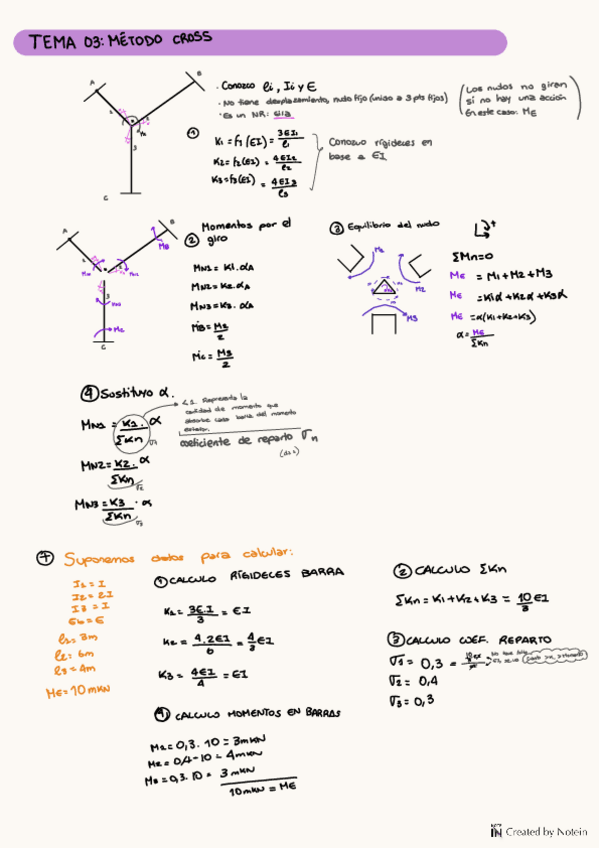 TEMA 03: MÉTODO CROSS
A
B
C
· Conozco li, Ii y E
· No tiene desplazamiento, nudo fijo (unido a 3 pts fijos)
· Es un NR:
(Los nudos no giran
si no hay una acción
En este caso: ME)
① K1 = f1 (EI) = 3EI1/l1
K2 = f2(EI) = 4EI2/l2
K3 = f3(EI) = 4EI3/l3
Conozco rígideces en
base a EI
② Momentos por el
giro
MN1 = K1.αA
MN2 = K2.αA
MN3 = K3.αA
MB = M2/2
MC = M3/2
③ Equilibrio del nudo
ΣMn=0
ME = M1+M2+M3
ME = K1α+K2α+K3α
ME = α(K1+K2+K3)
α = ME/ΣKn
M2
M3
④ Sustituyo α.
MN1 = K1/ΣKn · α
MN2 = K2/ΣKn · α
MN3 = K3/ΣKn · α
<1. Representa la
cantidad de momento que
absorbe cada barra del momento
exterior.
coeficiente de reparto σn
Suponemos datos para calcular:
I1 = I
I2 = 2I
I3 = I
l1 = 3m
l2 = 6m
l3 = 4m
ME = 10mKN
① CALCULO RÍGIDECES BARRA
K1 = 3E.I/3 = EI
K2 = 4.2EI/6 = 4/3 EI
K3 = 4EI/4 = EI
② CALCULO ΣKn
ΣKn = K1+K2+K3 = 10/3 EI
③ CALCULO COEF. REPARTO
σ1 = 0,3
σ2 = 0,4
σ3 = 0,3
④ CALCULO MOMENTOS EN BARRAS
M1 = 0,3 . 10 = 3mKN
M2 = 0,4 · 10 = 4mKN
M3 = 0,3 . 10 = 3mKN
10mKN = ME
Created by Notein